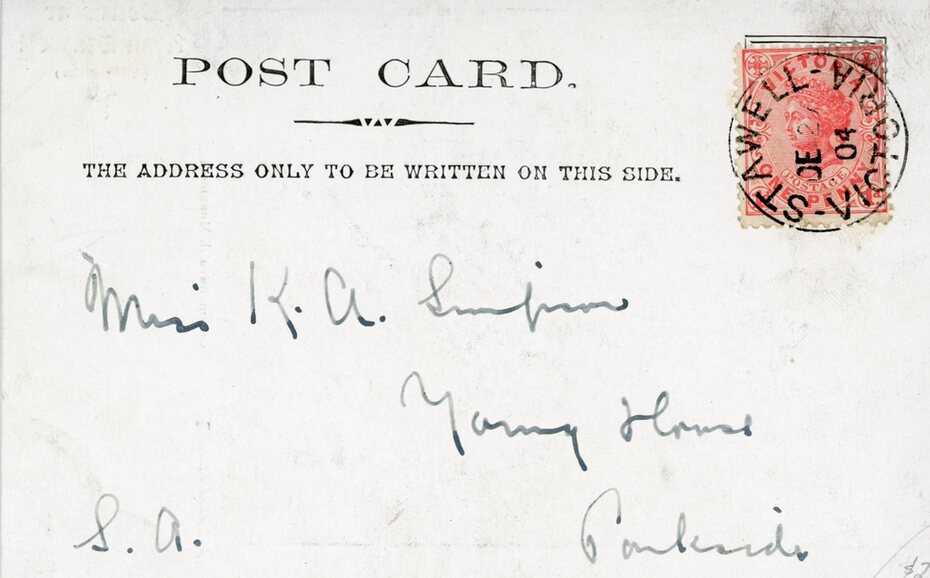 POST CARD.
THE ADDRESS ONLY TO BE WRITTEN ON THIS SIDE.
VICTORIA
POSTAGE
ONE PENNY
STAWELL - VICTORIA -
DE 2
04
Miss K. A. Simpson
Young House
Parkside
S. A.
$2